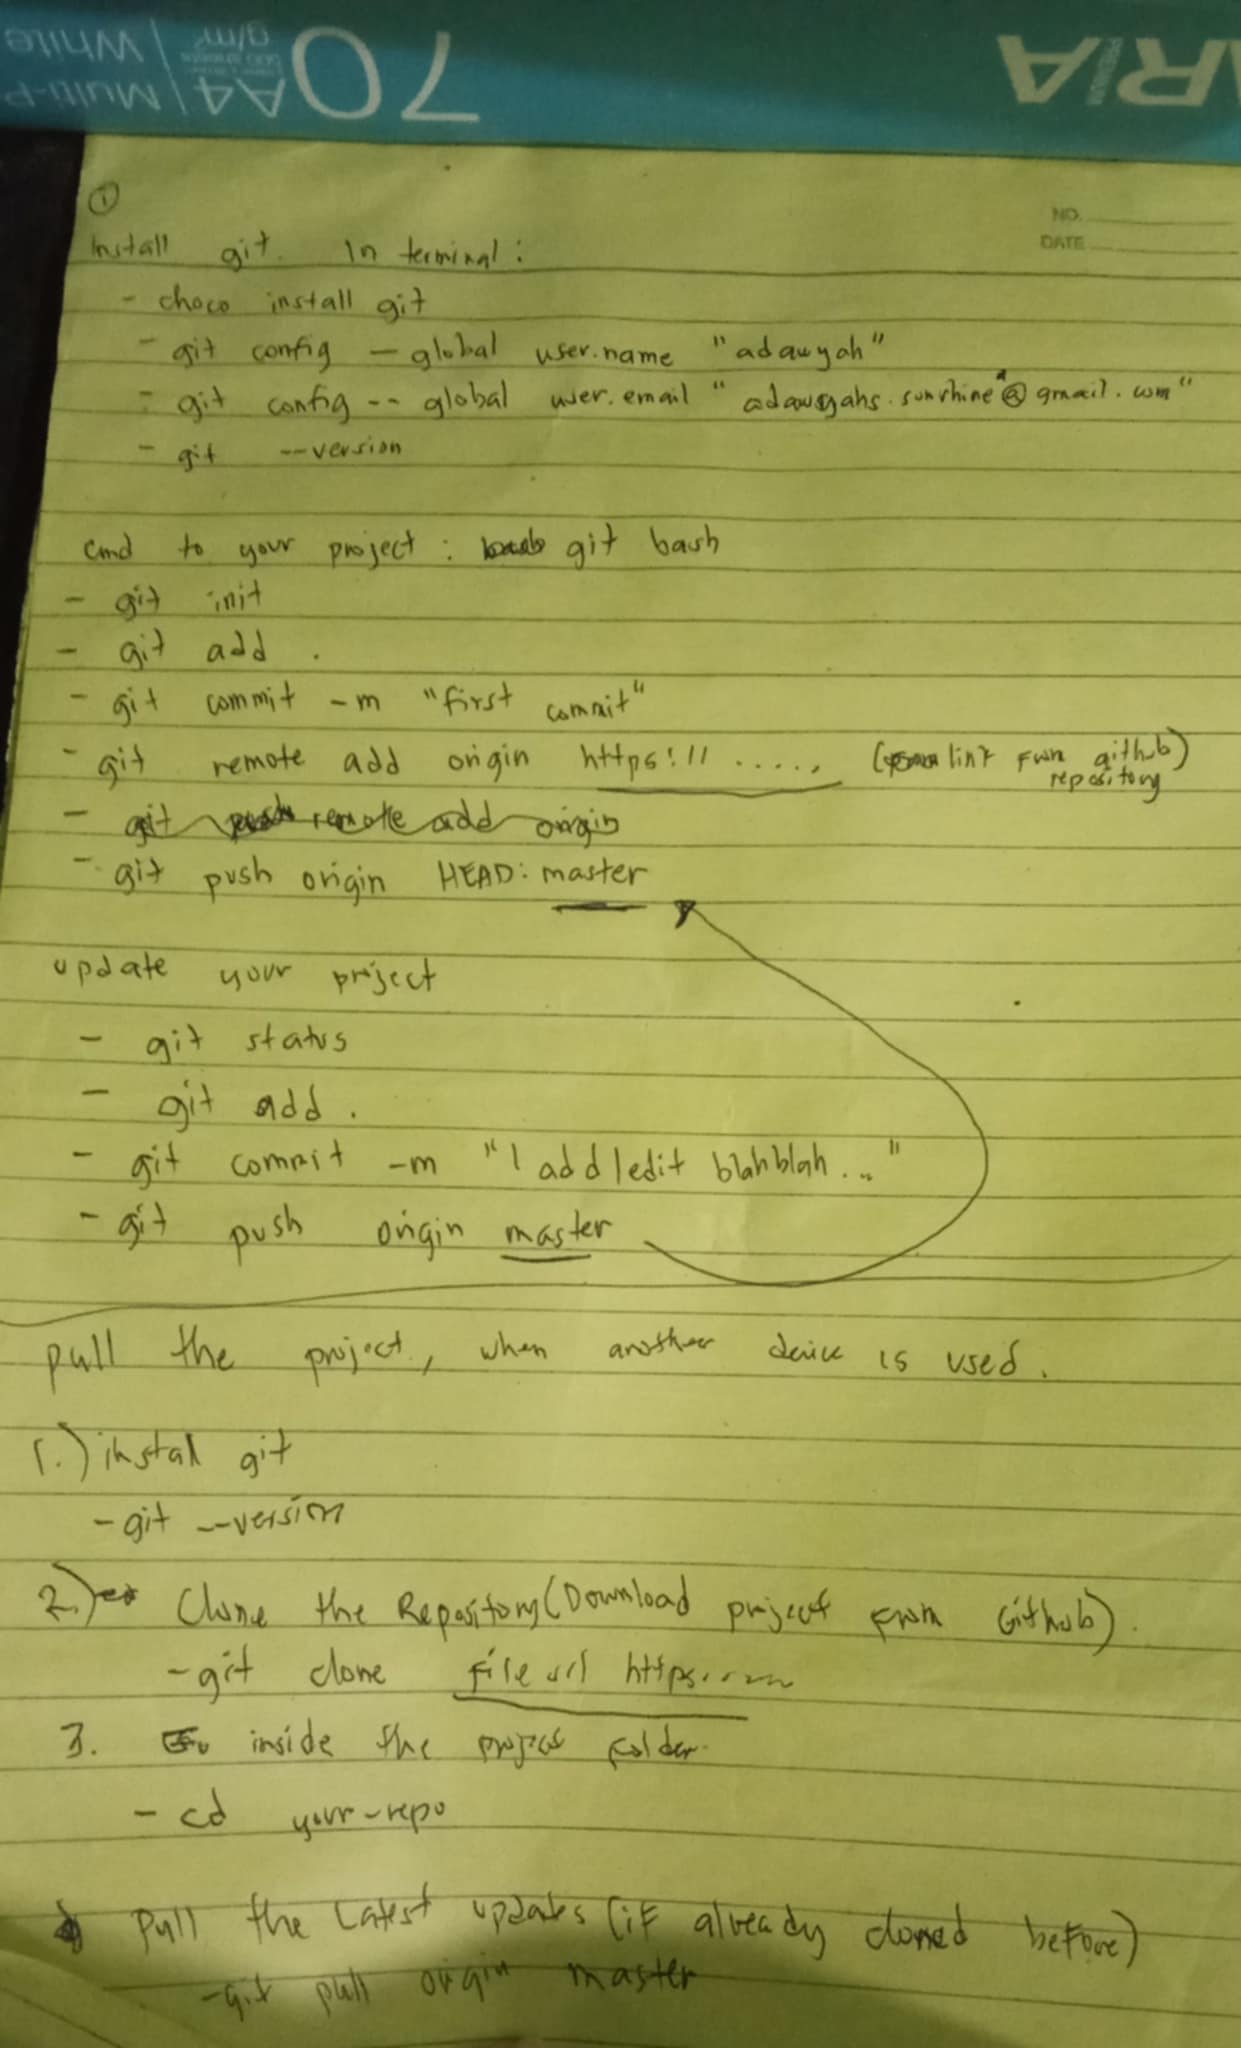 White
Multi-P
g/m²
A4
70
PREMIUM
NO.
DATE
①
Install git. In terminal:
- choco install git
- git config — global user.name "adawyah"
- git config -- global user.email "adawyahs.sunshine@gmail.com"
- git --version
cmd to your project: git bash
- git init
- git add .
- git commit -m "first commit"
- git remote add origin https://..... (link from github repository)
- git push remote add origin
- git push origin HEAD:master
update your project
- git status
- git add .
- git commit -m "I add/edit blahblah..."
- git push origin master
pull the project, when another device is used.
1.) instal git
- git --version
2.) Clone the Repository (Download project from Github).
- git clone file url https.....
3. inside the project folder.
- cd your-repo
Pull the Latest updates (if already cloned before)
- git pull origin master